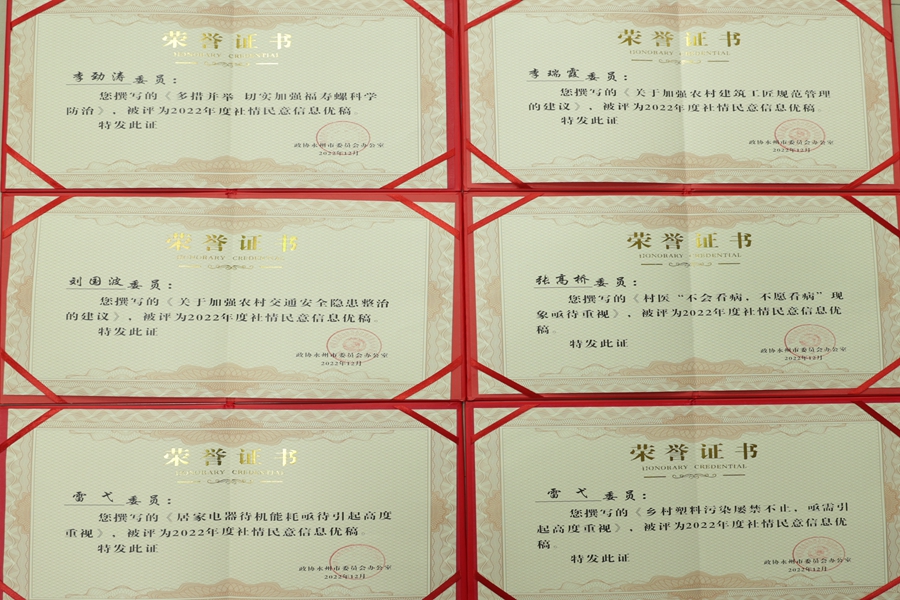 荣誉证书
HONORARY CREDENTIAL
李劲涛 委员：
您撰写的《多措并举 切实加强福寿螺科学
防治》，被评为2022年度社情民意信息优稿。
特发此证
政协永州市委员会办公室
2022年12月
荣誉证书
HONORARY CREDENTIAL
李瑞霞 委员：
您撰写的《关于加强农村建筑工匠规范管理
的建议》，被评为2022年度社情民意信息优稿。
特发此证
政协永州市委员会办公室
2022年12月
荣誉证书
HONORARY CREDENTIAL
刘国波 委员：
您撰写的《关于加强农村交通安全隐患整治
的建议》，被评为2022年度社情民意信息优稿。
特发此证
政协永州市委员会办公室
2022年12月
荣誉证书
HONORARY CREDENTIAL
张高桥 委员：
您撰写的《村医“不会看病，不愿看病”现
象亟待重视》，被评为2022年度社情民意信息优
稿。
特发此证
政协永州市委员会办公室
2022年12月
荣誉证书
HONORARY CREDENTIAL
雷弋 委员：
您撰写的《居家电器待机能耗亟待引起高度
重视》，被评为2022年度社情民意信息优稿。
特发此证
政协永州市委员会办公室
2022年12月
荣誉证书
HONORARY CREDENTIAL
雷弋 委员：
您撰写的《乡村塑料污染屡禁不止，亟需引
起高度重视》，被评为2022年度社情民意信息优
稿。
特发此证
政协永州市委员会办公室
2022年12月